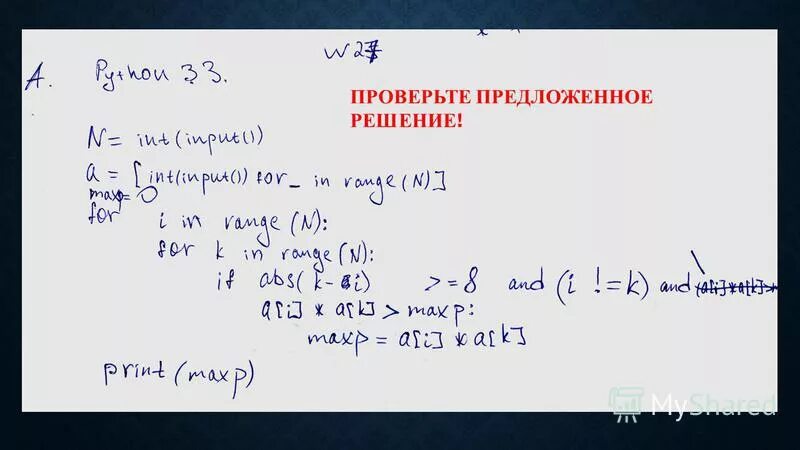 w27
A. Python 3.3.
ПРОВЕРЬТЕ ПРЕДЛОЖЕННОЕ
РЕШЕНИЕ!
N = int(input())
a = [int(input()) for _ in range(N)]
maxp = 0
for i in range(N):
for k in range(N):
if abs(k-i) >= 8 and (i != k) and \
a[i] * a[k] > maxp:
maxp = a[i] * a[k]
print(maxp)
MyShared